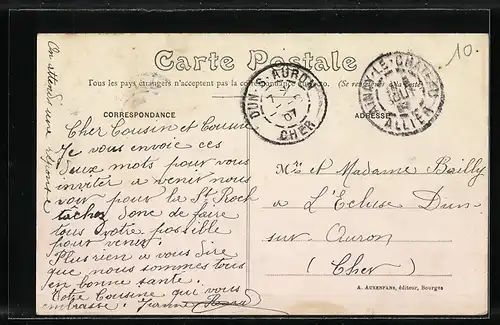 10.
Carte Postale
Tous les pays étrangers n'acceptent pas la correspondance
(Se
CORRESPONDANCE
ADRESSE
DUN-S-AURON
07
CHER
AINAY-LE-CHATEAU
ALLIER
On attend une réponse
Cher Cousin et Cousine
Je vous envoie ces
deux mots pour vous
inviter a venir nous
voir pour la St Roch
tachez donc de faire
tous votre possible
pour venir.
Plus rien a vous dire
que nous sommes tous
en bonne santé.
Votre Cousine qui vous
embrasse.
Mr et Madame Bailly
a L'Ecluse Dun
sur Auron
(Cher)
A. AUXENFANS, éditeur, Bourges